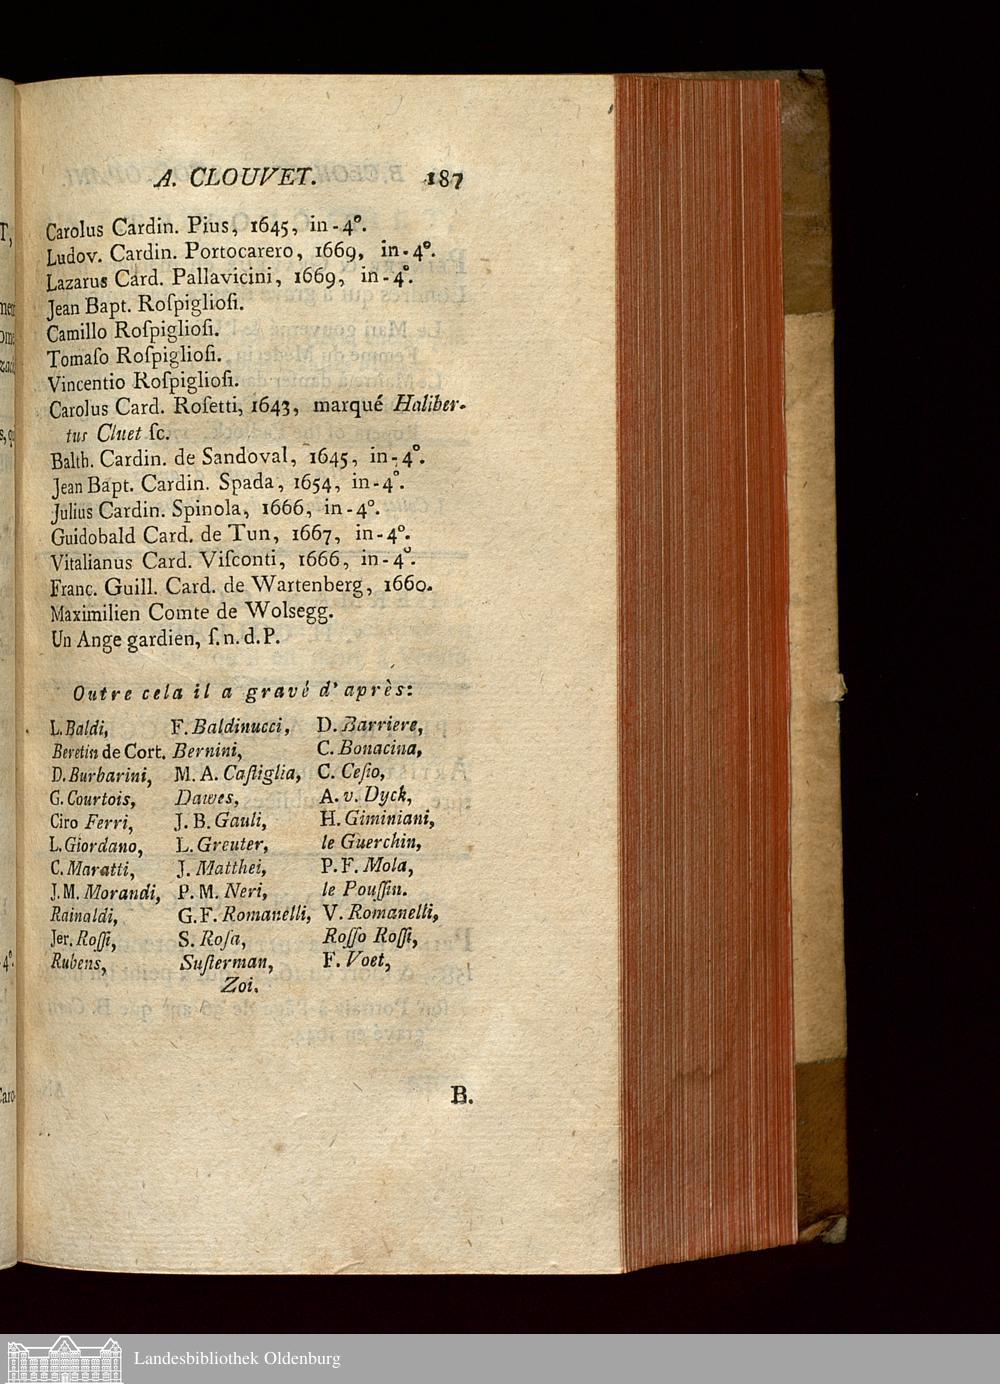 A. CLOUVET. 187
Carolus Cardin. Pius, 1645, in-4°.
Ludov. Cardin. Portocarero, 1669, in-4°.
Lazarus Card. Pallavicini, 1669, in-4°.
Jean Bapt. Roſpiglioſi.
Camillo Roſpiglioſi.
Tomaſo Roſpiglioſi.
Vincentio Roſpiglioſi.
Carolus Card. Roſetti, 1643, marqué Haliber-
tus Cluet ſc.
Balth. Cardin. de Sandoval, 1645, in-4°.
Jean Bapt. Cardin. Spada, 1654, in-4°.
Julius Cardin. Spinola, 1666, in-4°.
Guidobald Card. de Tun, 1667, in-4°.
Vitalianus Card. Viſconti, 1666, in-4°.
Franc. Guill. Card. de Wartenberg, 1660.
Maximilien Comte de Wolsegg.
Un Ange gardien, ſ. n. d. P.
Outre cela il a gravé d'après:
L. Baldi, F. Baldinucci, D. Barriere,
Beretin de Cort. Bernini, C. Bonacina,
D. Burbarini, M. A. Caſtiglia, C. Ceſio,
G. Courtois, Dawes, A. v. Dyck,
Ciro Ferri, J. B. Gauli, H. Giminiani,
L. Giordano, L. Greuter, le Guerchin,
C. Maratti, J. Matthei, P. F. Mola,
J. M. Morandi, P. M. Neri, le Pouſſin.
Rainaldi, G. F. Romanelli, V. Romanelli,
Jer. Roſſi, S. Roſa, Roſſo Roſſi,
Rubens, Suſterman, F. Voet,
Zoi.
B.
Landesbibliothek Oldenburg